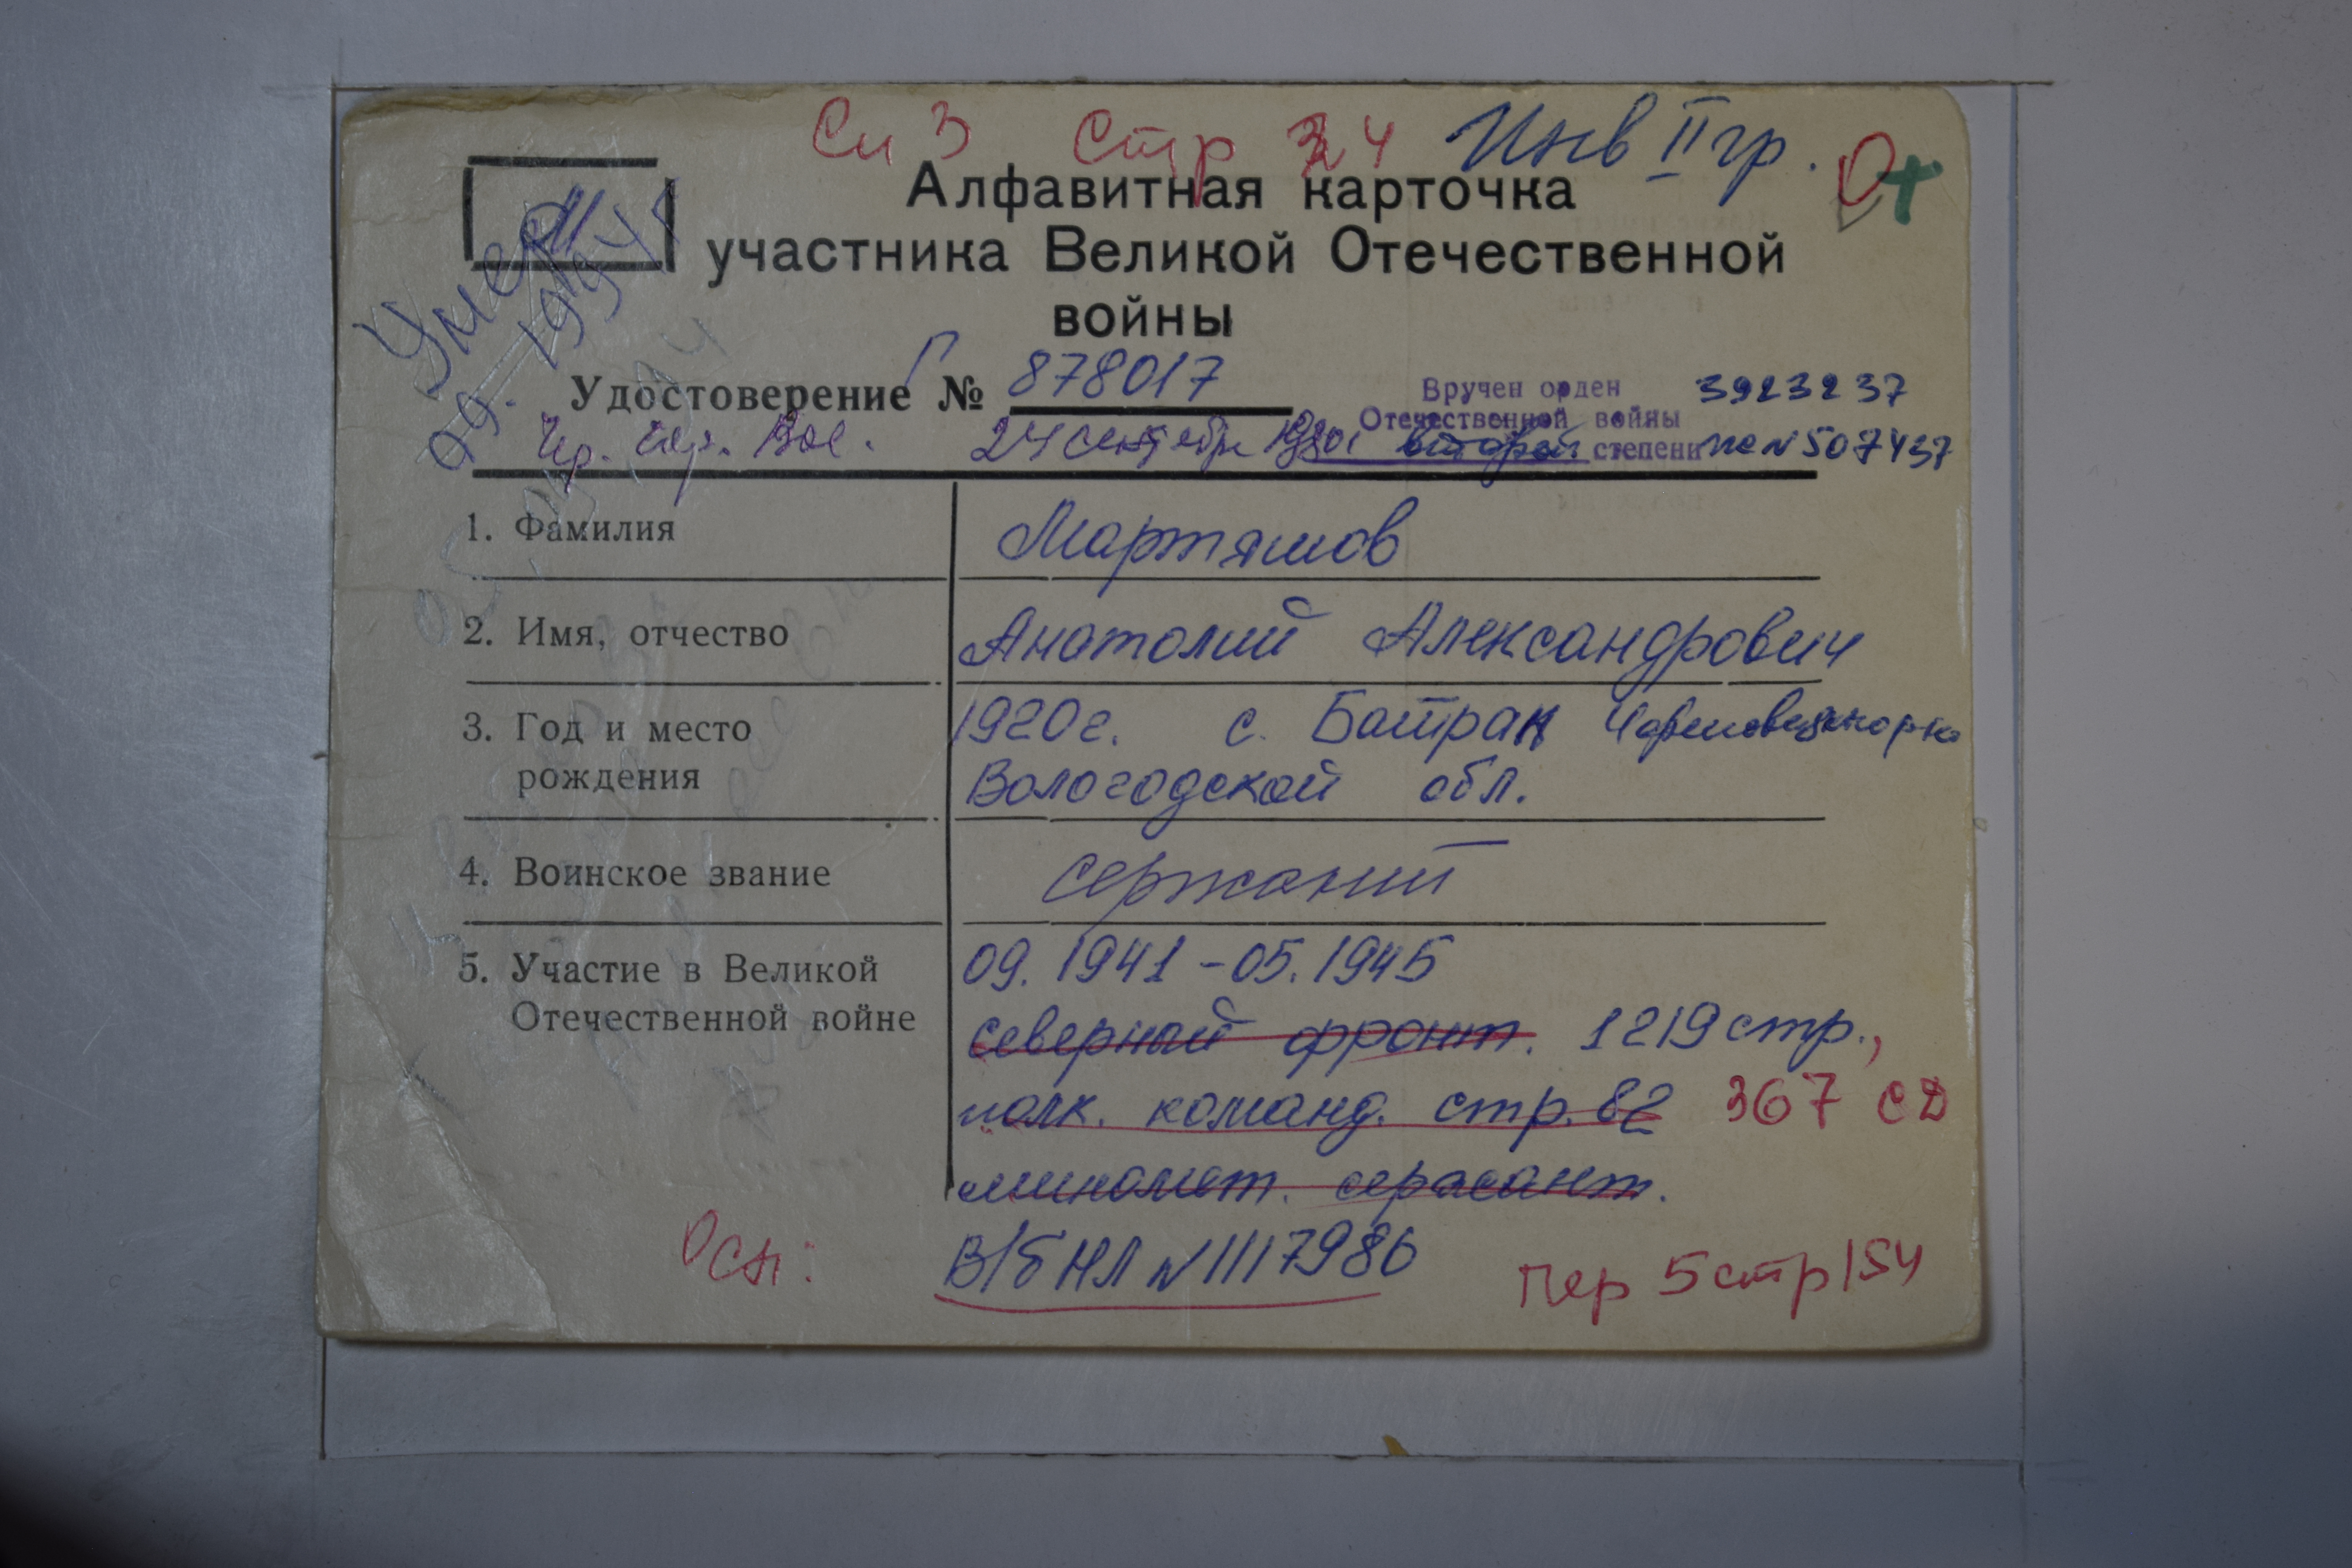 Сп 3 Стр 34 Инв II гр.
Алфавитная карточка
участника Великой Отечественной
войны
Умер
09.
Удостоверение Г № 878017
Вручен орден 3923237
Отечественной войны
второй степени № 507437
24 сентября
1. Фамилия Мартяшов
2. Имя, отчество Анатолий Александрович
3. Год и место 1920г. с. Ботран
рождения Вологодской обл.
4. Воинское звание сержант
5. Участие в Великой 09.1941-05.1945
Отечественной войне северный фронт. 1219 стр.,
полк. команд. стр. 82 367 СД
миномет. сержант.
Осн: В/б НЛ N 1117986 Пер 5 стр 154